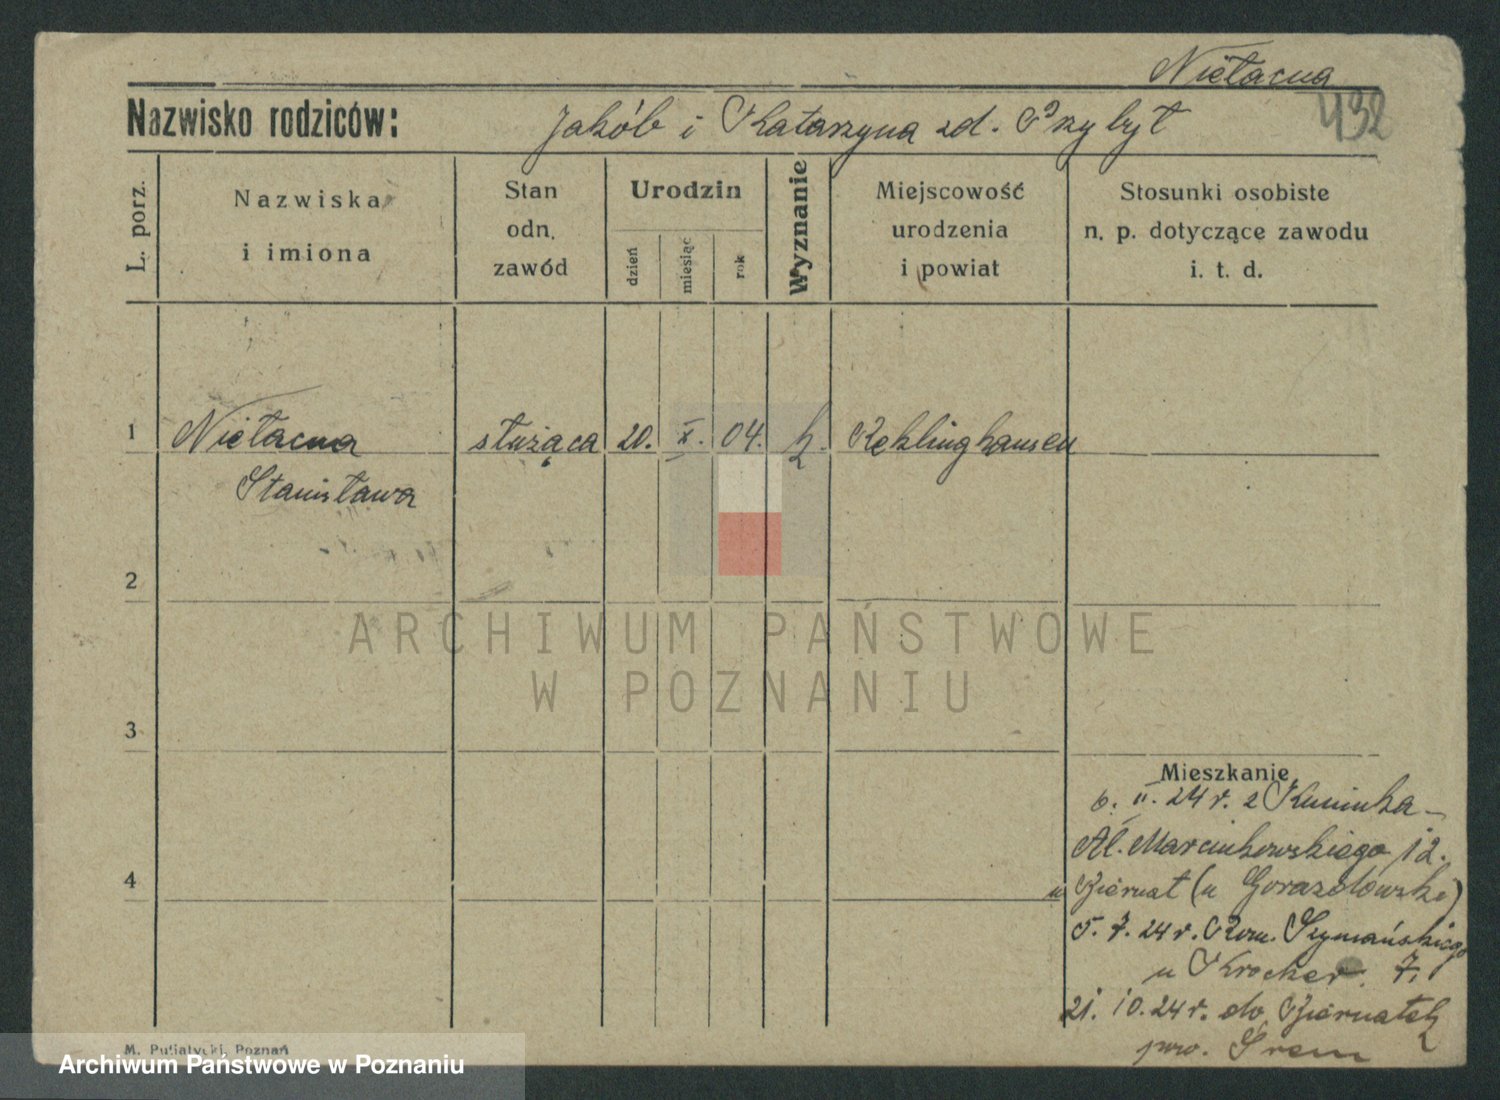 Nietacna
432
Nazwisko rodziców: Jakób i Katarzyna zd. Przybyt
L. porz.
Nazwiska
i imiona
Stan
odn.
zawód
Urodzin
dzień
miesiąc
rok
Wyznanie
Miejscowość
urodzenia
i powiat
Stosunki osobiste
n. p. dotyczące zawodu
i. t. d.
1 Nietacna służąca 20. X. 04. k. Reklinghausen
Stanisława
2
3
4
Mieszkanie
6. II. 24 r. z
Al. Marcinkowskiego 12.
u Biernat (u Gorazdowski)
5. 7. 24 r. Rom. Szymańskiego
u Krocker. 7.
21. 10. 24 r. do Biernatek
pow. Śrem
M. Putiatycki, Poznań
ARCHIWUM PAŃSTWOWE
W POZNANIU
Archiwum Państwowe w Poznaniu